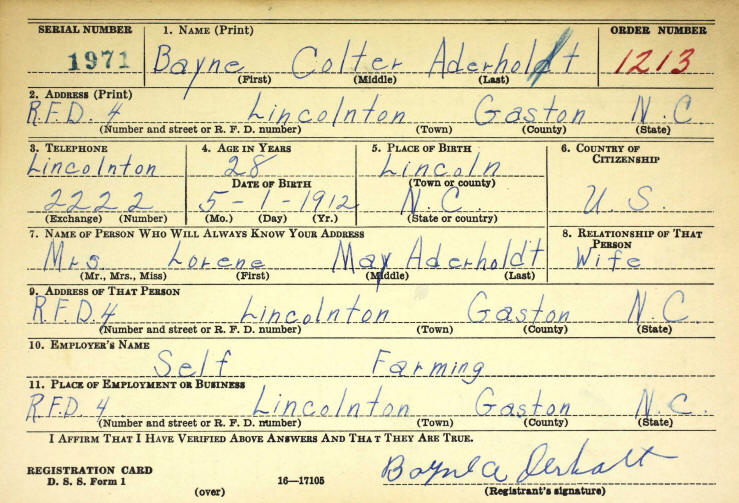 SERIAL NUMBER 1. NAME (Print) ORDER NUMBER
1971 Bayne Colter Aderholdt 1213
(First) (Middle) (Last)
2. ADDRESS (Print)
R.F.D. 4 Lincolnton Gaston N.C.
(Number and street or R. F. D. number) (Town) (County) (State)
3. TELEPHONE 4. AGE IN YEARS 5. PLACE OF BIRTH 6. COUNTRY OF CITIZENSHIP
Lincolnton 28 Lincoln
DATE OF BIRTH (Town or county)
2222 5-1-1912 N.C. U.S.
(Exchange) (Number) (Mo.) (Day) (Yr.) (State or country)
7. NAME OF PERSON WHO WILL ALWAYS KNOW YOUR ADDRESS 8. RELATIONSHIP OF THAT PERSON
Mrs Lorene May Aderholdt Wife
(Mr., Mrs., Miss) (First) (Middle) (Last)
9. ADDRESS OF THAT PERSON
R.F.D. 4 Lincolnton Gaston N.C.
(Number and street or R. F. D. number) (Town) (County) (State)
10. EMPLOYER'S NAME
Self Farming
11. PLACE OF EMPLOYMENT OR BUSINESS
R.F.D. 4 Lincolnton Gaston N.C.
(Number and street or R. F. D. number) (Town) (County) (State)
I AFFIRM THAT I HAVE VERIFIED ABOVE ANSWERS AND THAT THEY ARE TRUE.
REGISTRATION CARD
D. S. S. Form 1 16—17105
(over) (Registrant's signature)